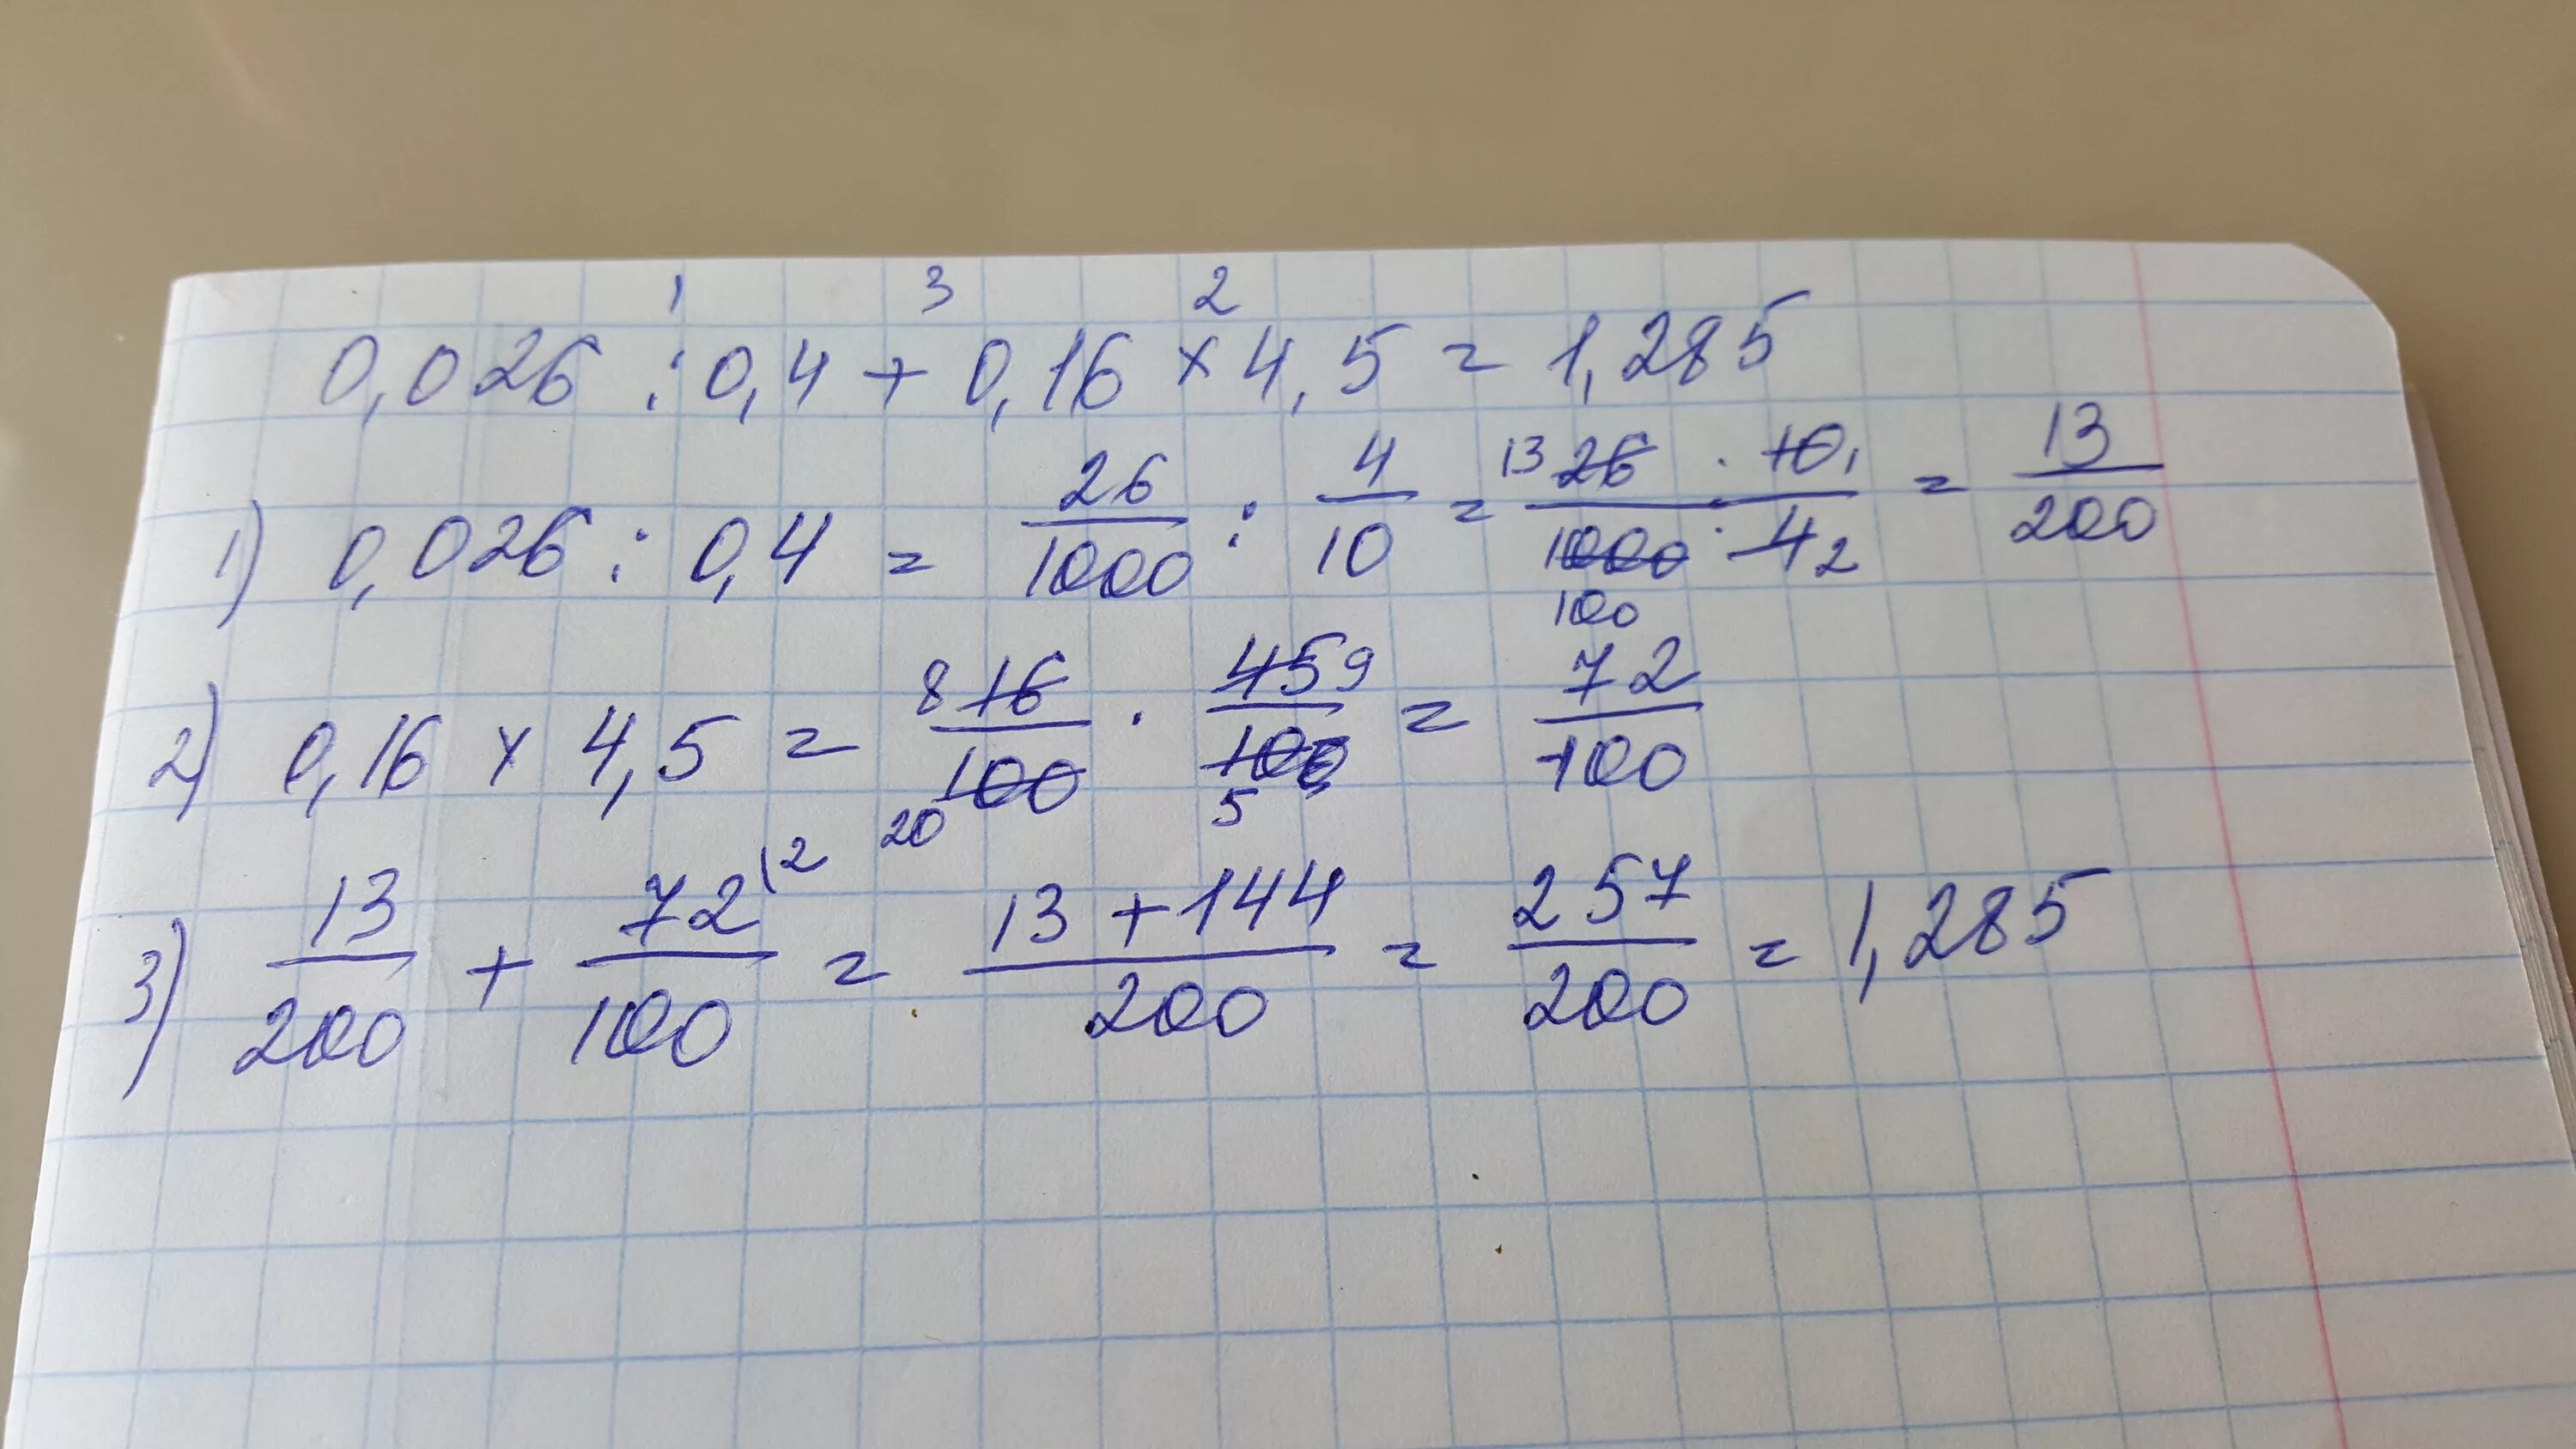 1 3 2
0,026 : 0,4 + 0,16 × 4,5 = 1,285
1) 0,026 : 0,4 = 26/1000 : 4/10 = 13 26 · 10 1 / 1000 · 4 2 = 13/200
100
2) 0,16 × 4,5 = 8 16/100 20 · 45 9/100 5 = 72/100
3) 13/200 + 72/100 |2 = 13 + 144/200 = 257/200 = 1,285